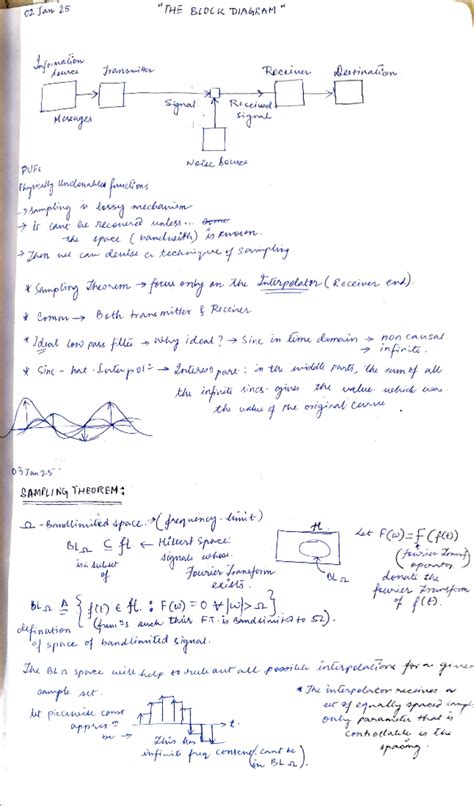 02 Jan 25
"THE BLOCK DIAGRAM"
Information Source
Transmitter
Receiver
Destination
Signal
Received Signal
Messages
Noise Source
PUFs
Physically Unclonable functions
→ Sampling is lossy mechanism
→ It can't be recovered unless...
the space (bandwidth) is known.
→ Then we can devise a technique of sampling
* Sampling Theorem → focus only on the Interpolator (Receiver end).
* Comm → Both transmitter & Receiver
* Ideal low pass filter → Why ideal? → Sinc in time domain → non causal
→ infinite.
* Sinc - hat Interpol → Interest part: in the middle parts, the sum of all
the infinite sincs gives the value which was
the value of the original curve
03 Jan 25
SAMPLING THEOREM:
Ω - Bandlimited space → (frequency limit)
BL Ω ⊆ H ← Hilbert Space:
is a subset of
signals whose
Fourier Transform
exists.
H
BL Ω
Let F(ω) = F(f(t))
(Fourier Transf)
operator
denote the
fourier transform
of f(t).
BL Ω ≜ { f(t) ∈ H : F(ω) = 0 ∀ |ω| > Ω }
(func's such this FT is bandlimited to Ω)
defination
of space of bandlimited signal.
The BL Ω space will help to rule out all possible interpolations for a given
sample set.
let piecewise const
approx
be →
t
This has
infinite freq content (can't be
in BL Ω)
* The interpolator receives a
set of equally spaced
only parameter that is
controllable is the
spacing.